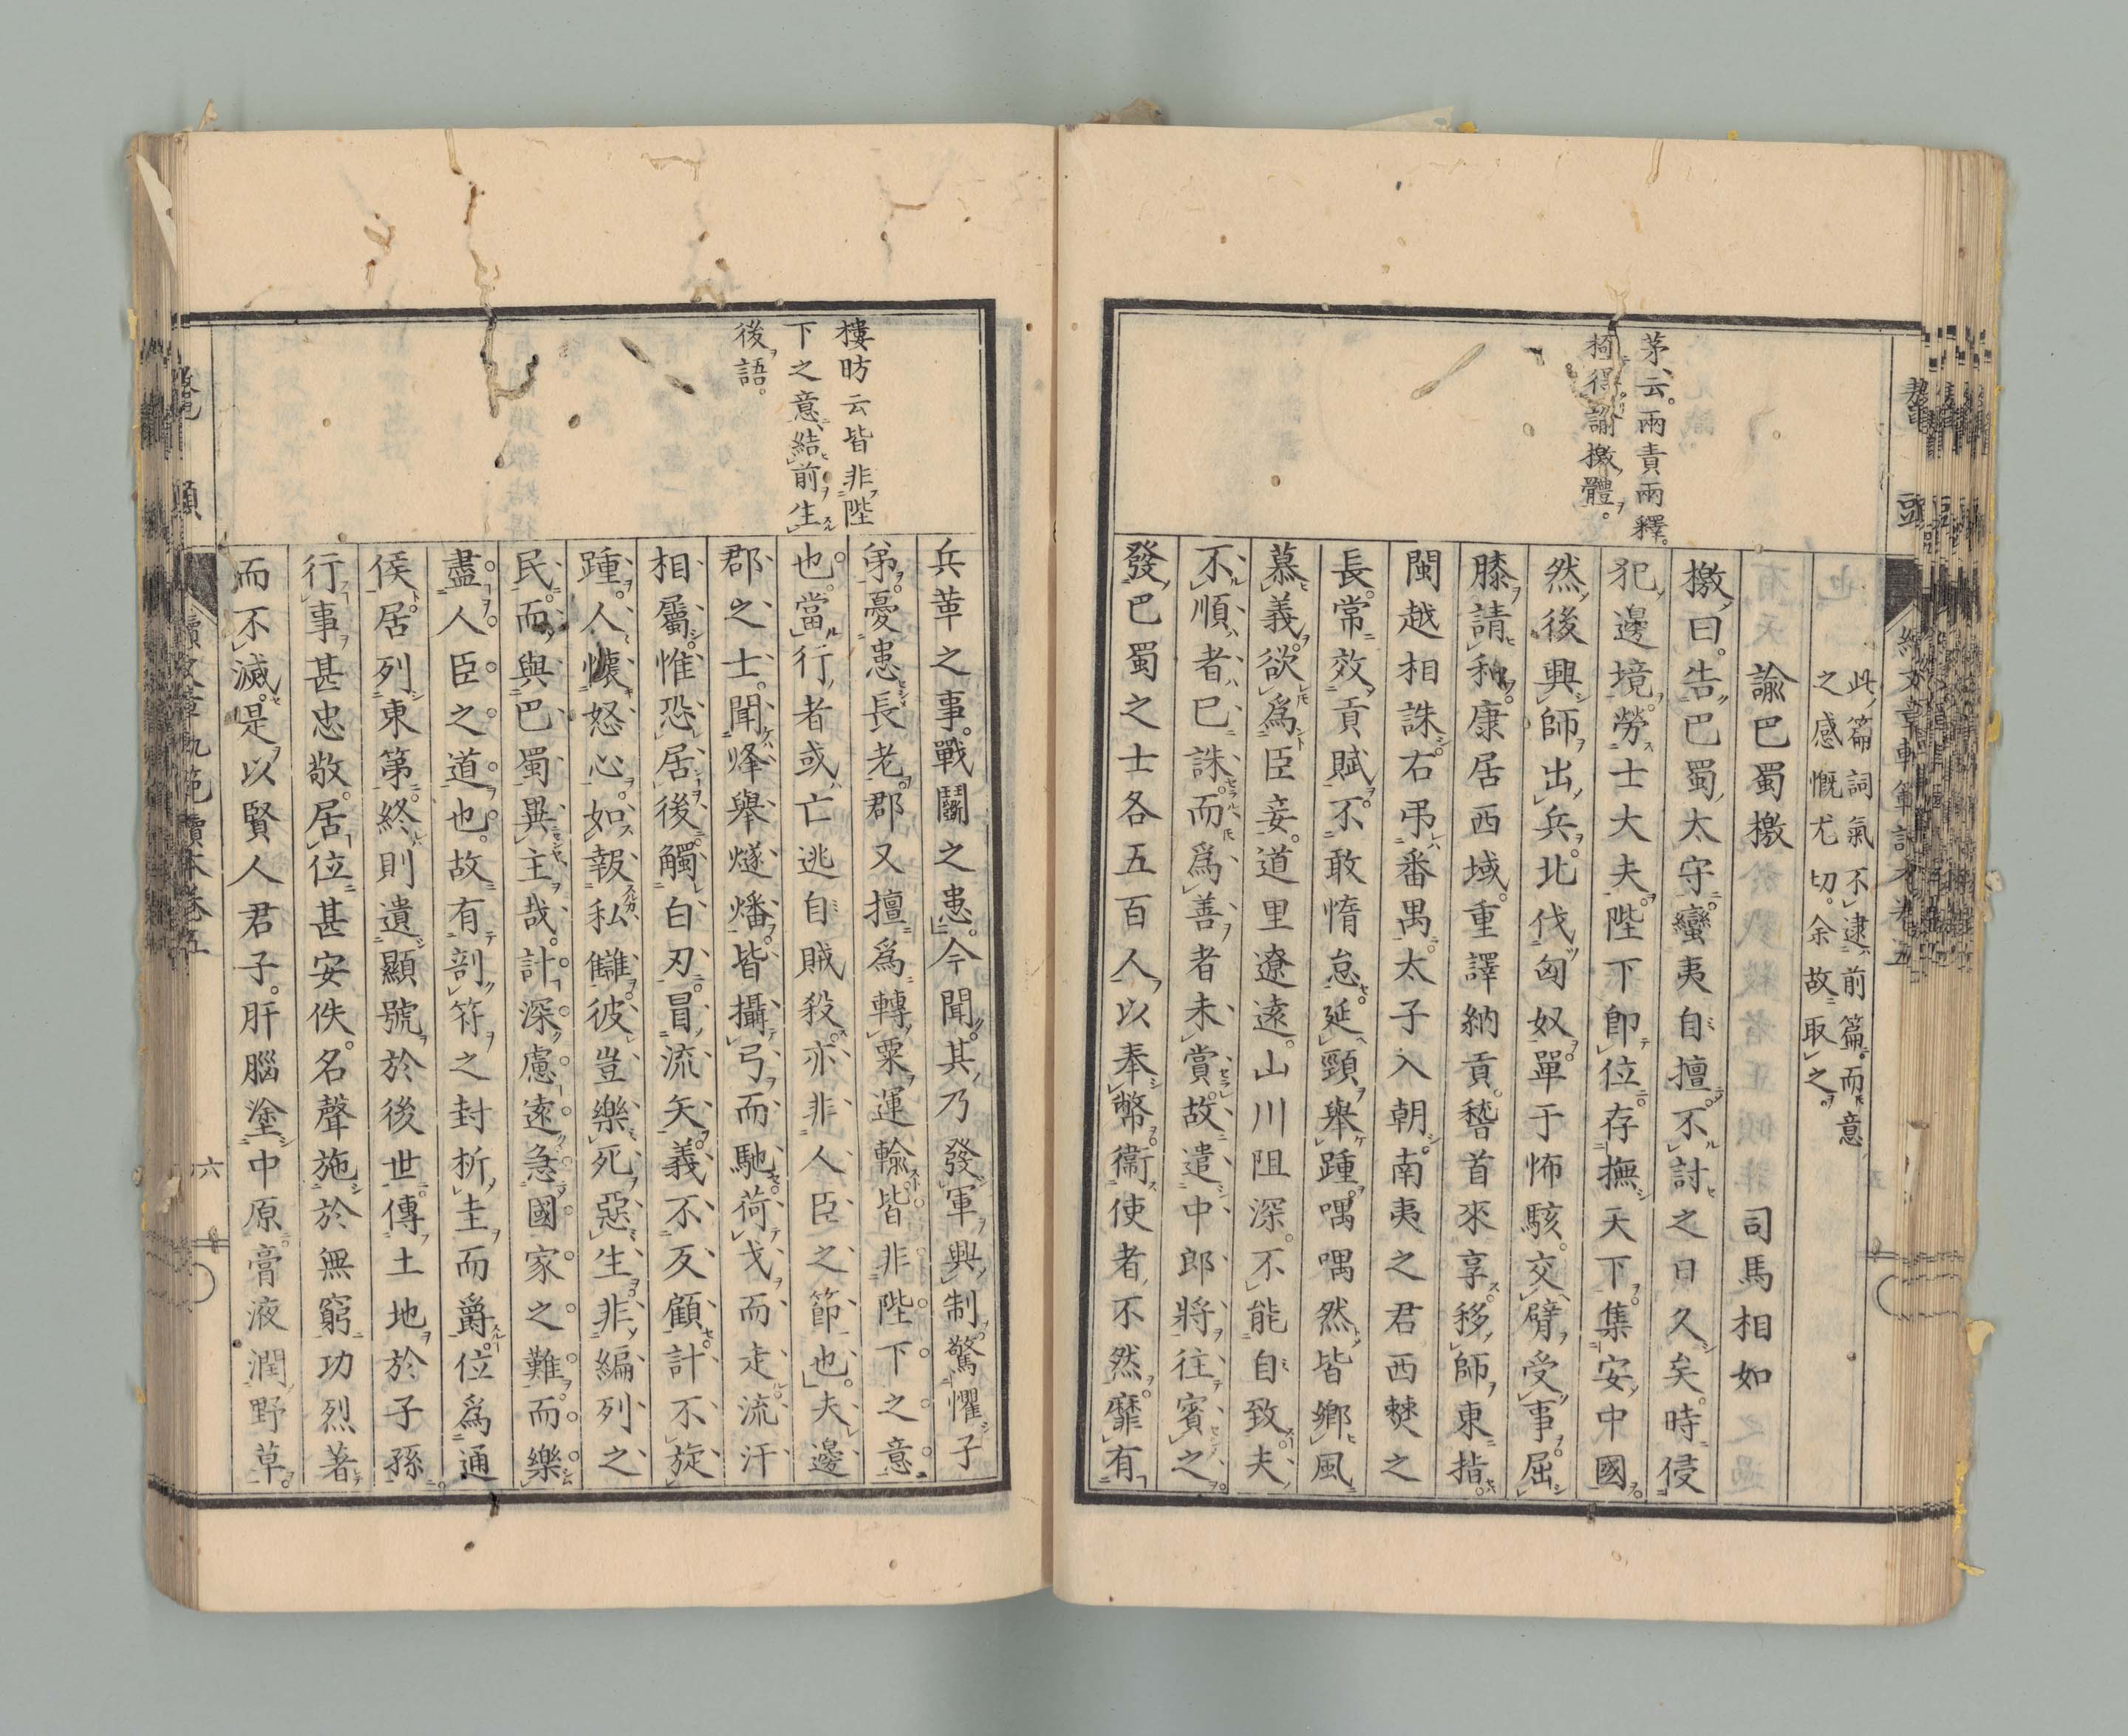 此篇詞氣不逮前篇而意
之感慨尤切。余故取之。
諭巴蜀檄 司馬相如
檄曰。告巴蜀太守。蠻夷自擅。不討之日久矣。時侵
犯邊境。勞士大夫。陛下卽位。存撫天下。集安中國。
然後興師出兵。北伐匈奴。單于怖駭。交臂受事。屈
膝請和。康居西域。重譯納貢。稽首來享。移師東指。
閩越相誅。右弔番禺。太子入朝。南夷之君西僰之
長。常效貢賦。不敢惰怠。延頸舉踵。喁喁然皆鄉風
慕義。欲爲臣妾。道里遼遠。山川阻深。不能自致。夫
不順者已誅。而爲善者未賞。故遣中郎將往賓之。
發巴蜀之士各五百人以奉幣。衞使者不然。靡有
茅云。兩責兩釋。
檄體。
兵革之事。戰鬭之患。今聞其乃發軍興制。驚懼子
弟。憂患長老。郡又擅爲轉粟運輸。皆非陛下之意
也。當行者或亡逃自賊殺。亦非人臣之節也。夫邊
郡之士。聞烽舉燧燔。皆攝弓而馳。荷戈而走。流汗
相屬。惟恐居後。觸白刃。冒流矢。義不反顧。計不旋
踵。人懷怒心。如報私讎。彼豈樂死惡生。非編列之
民。而與巴蜀異主哉。計深慮遠。急國家之難。而樂
盡人臣之道也。故有剖符之封。析圭而爵。位爲通
侯。居列東第。終則遺顯號於後世。傳土地於子孫。
行事甚忠敬。居位甚安佚。名聲施於無窮。功烈著
而不滅。是以賢人君子。肝腦塗中原。膏液潤野草。
樓昉云皆非陛
下之意。結前生
後語。
六